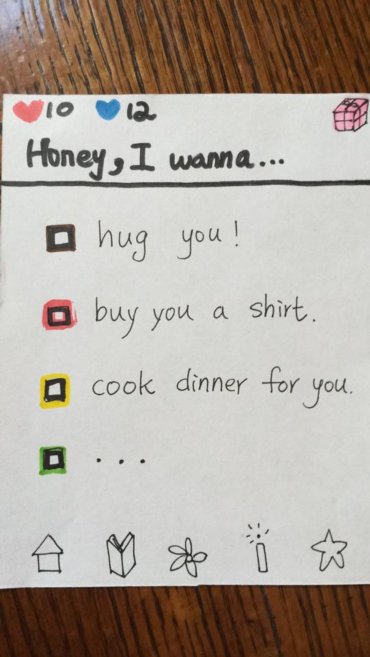 10 12
Honey, I wanna...
hug you!
buy you a shirt.
cook dinner for you.
...